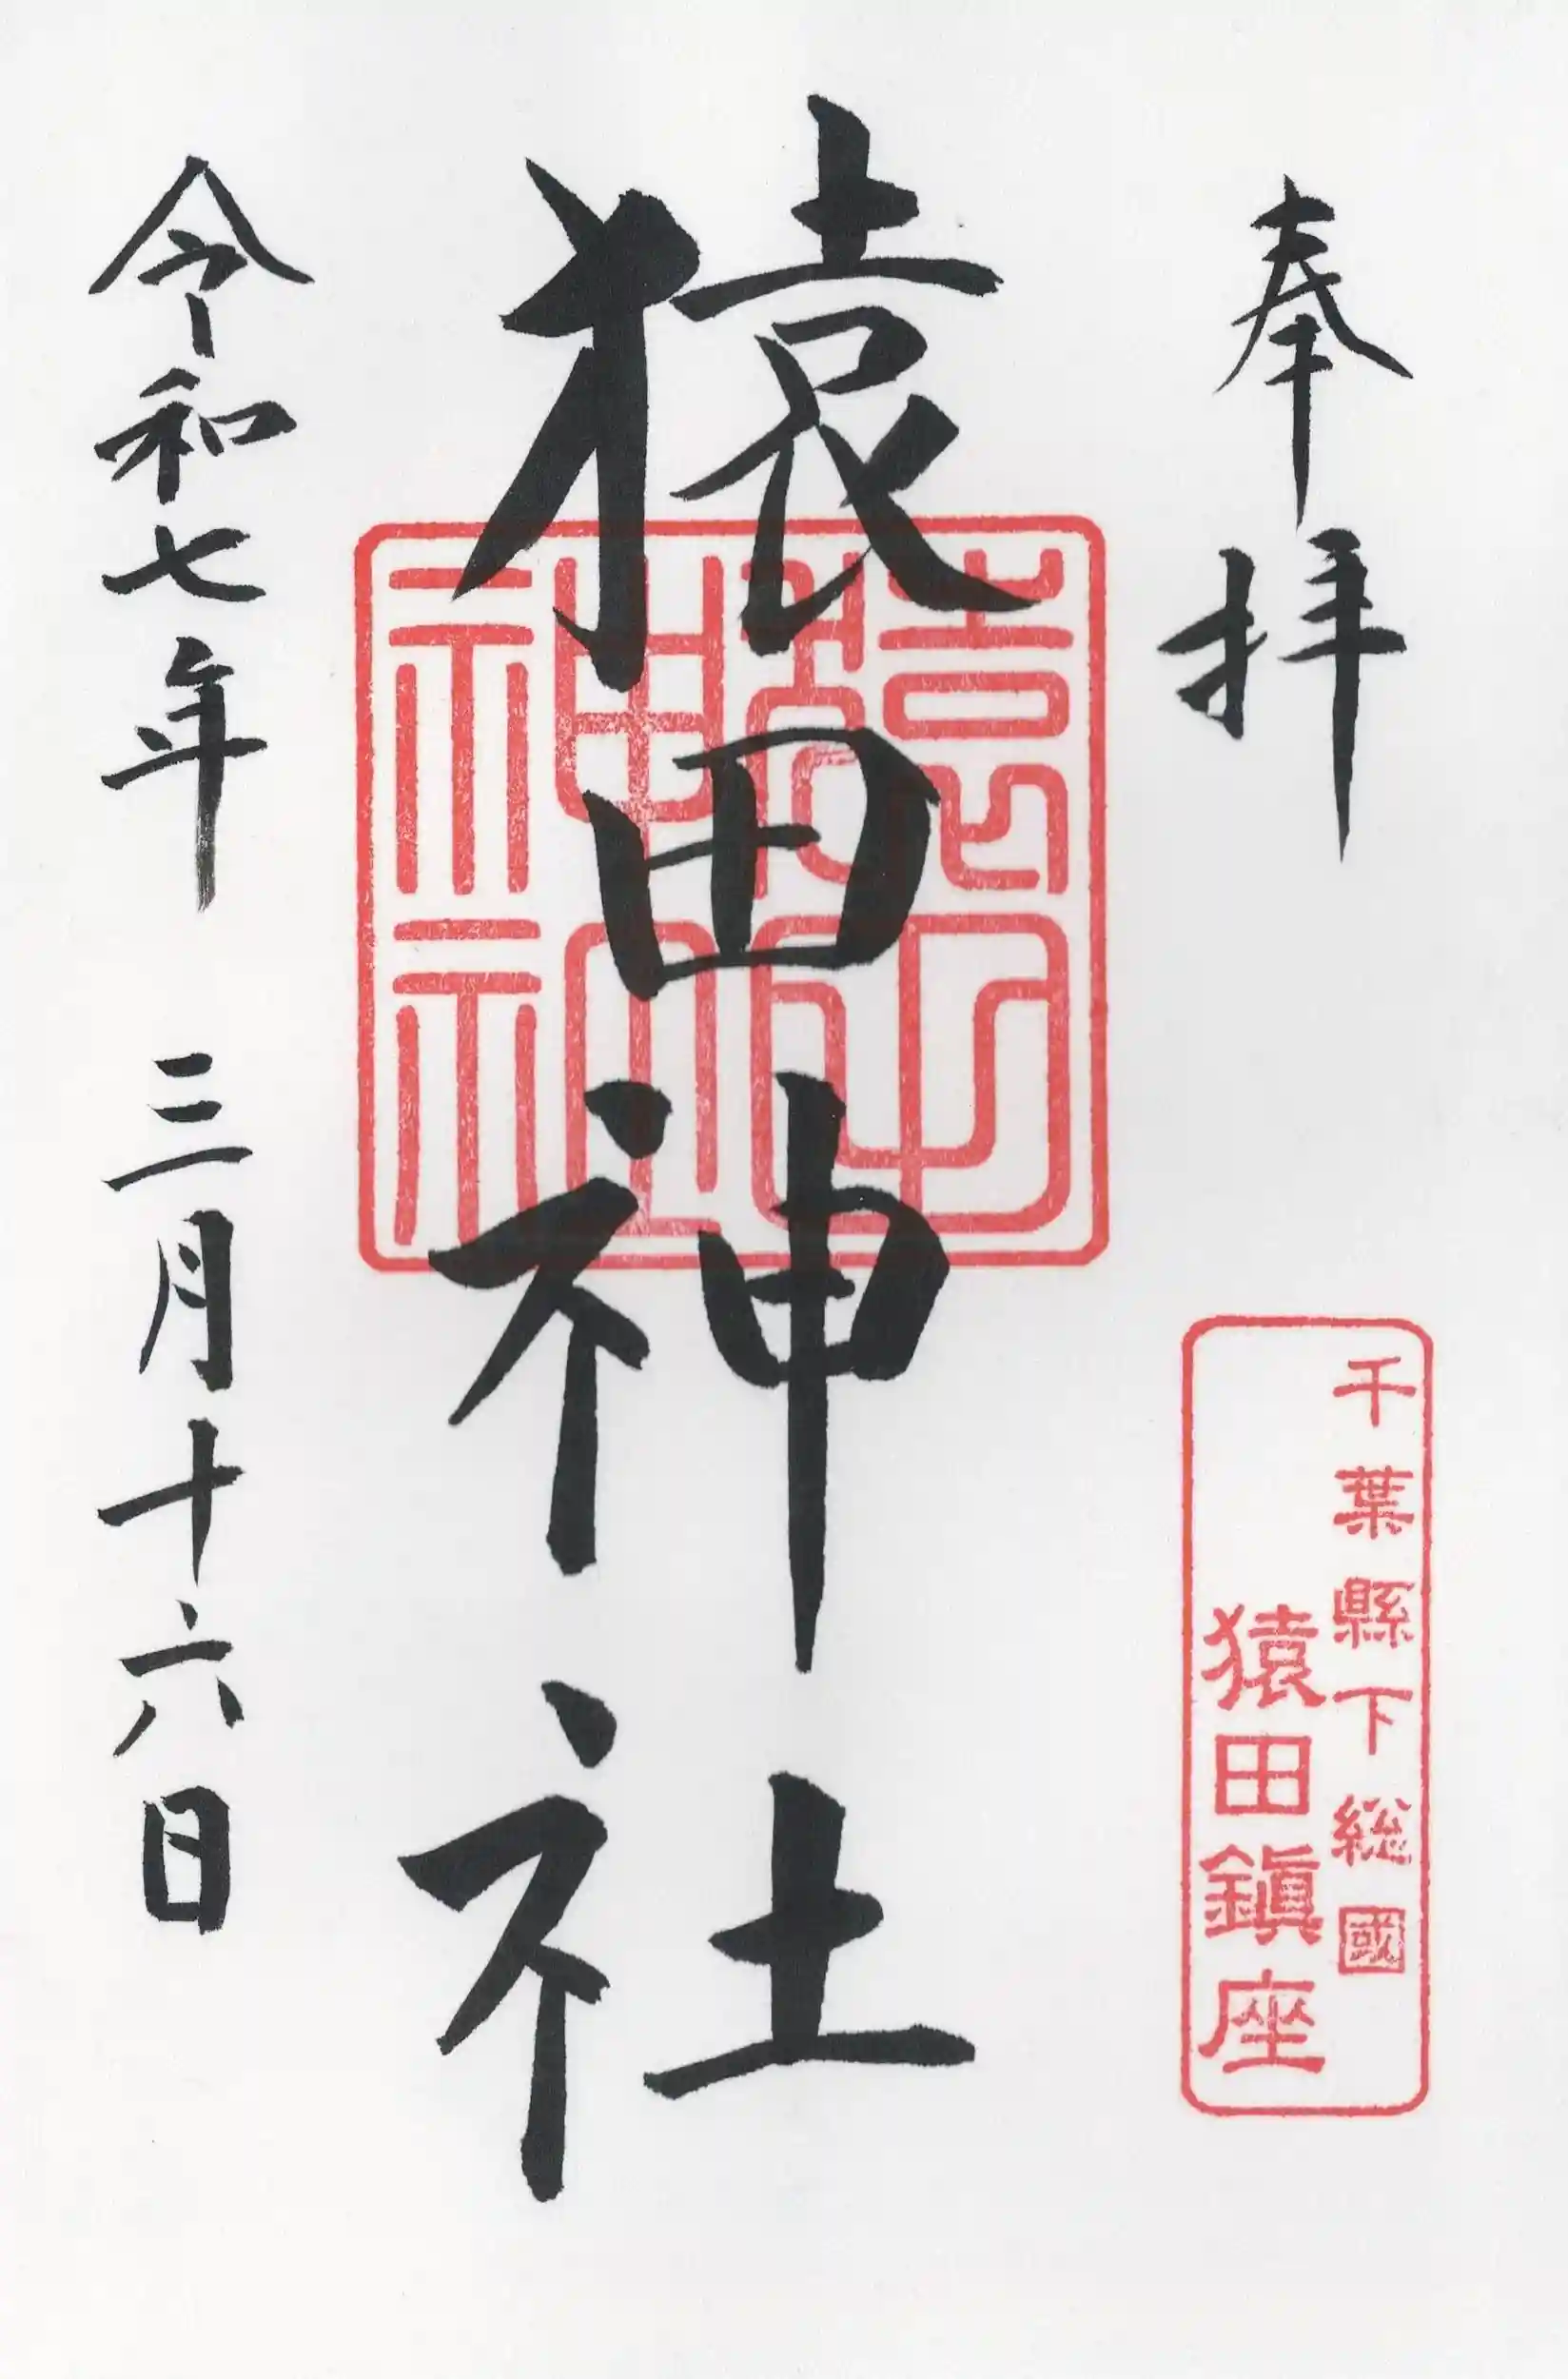 奉拝
千葉縣下総國
猿田鎮座
猿田神社
猿田神社
令和七年 三月十六日